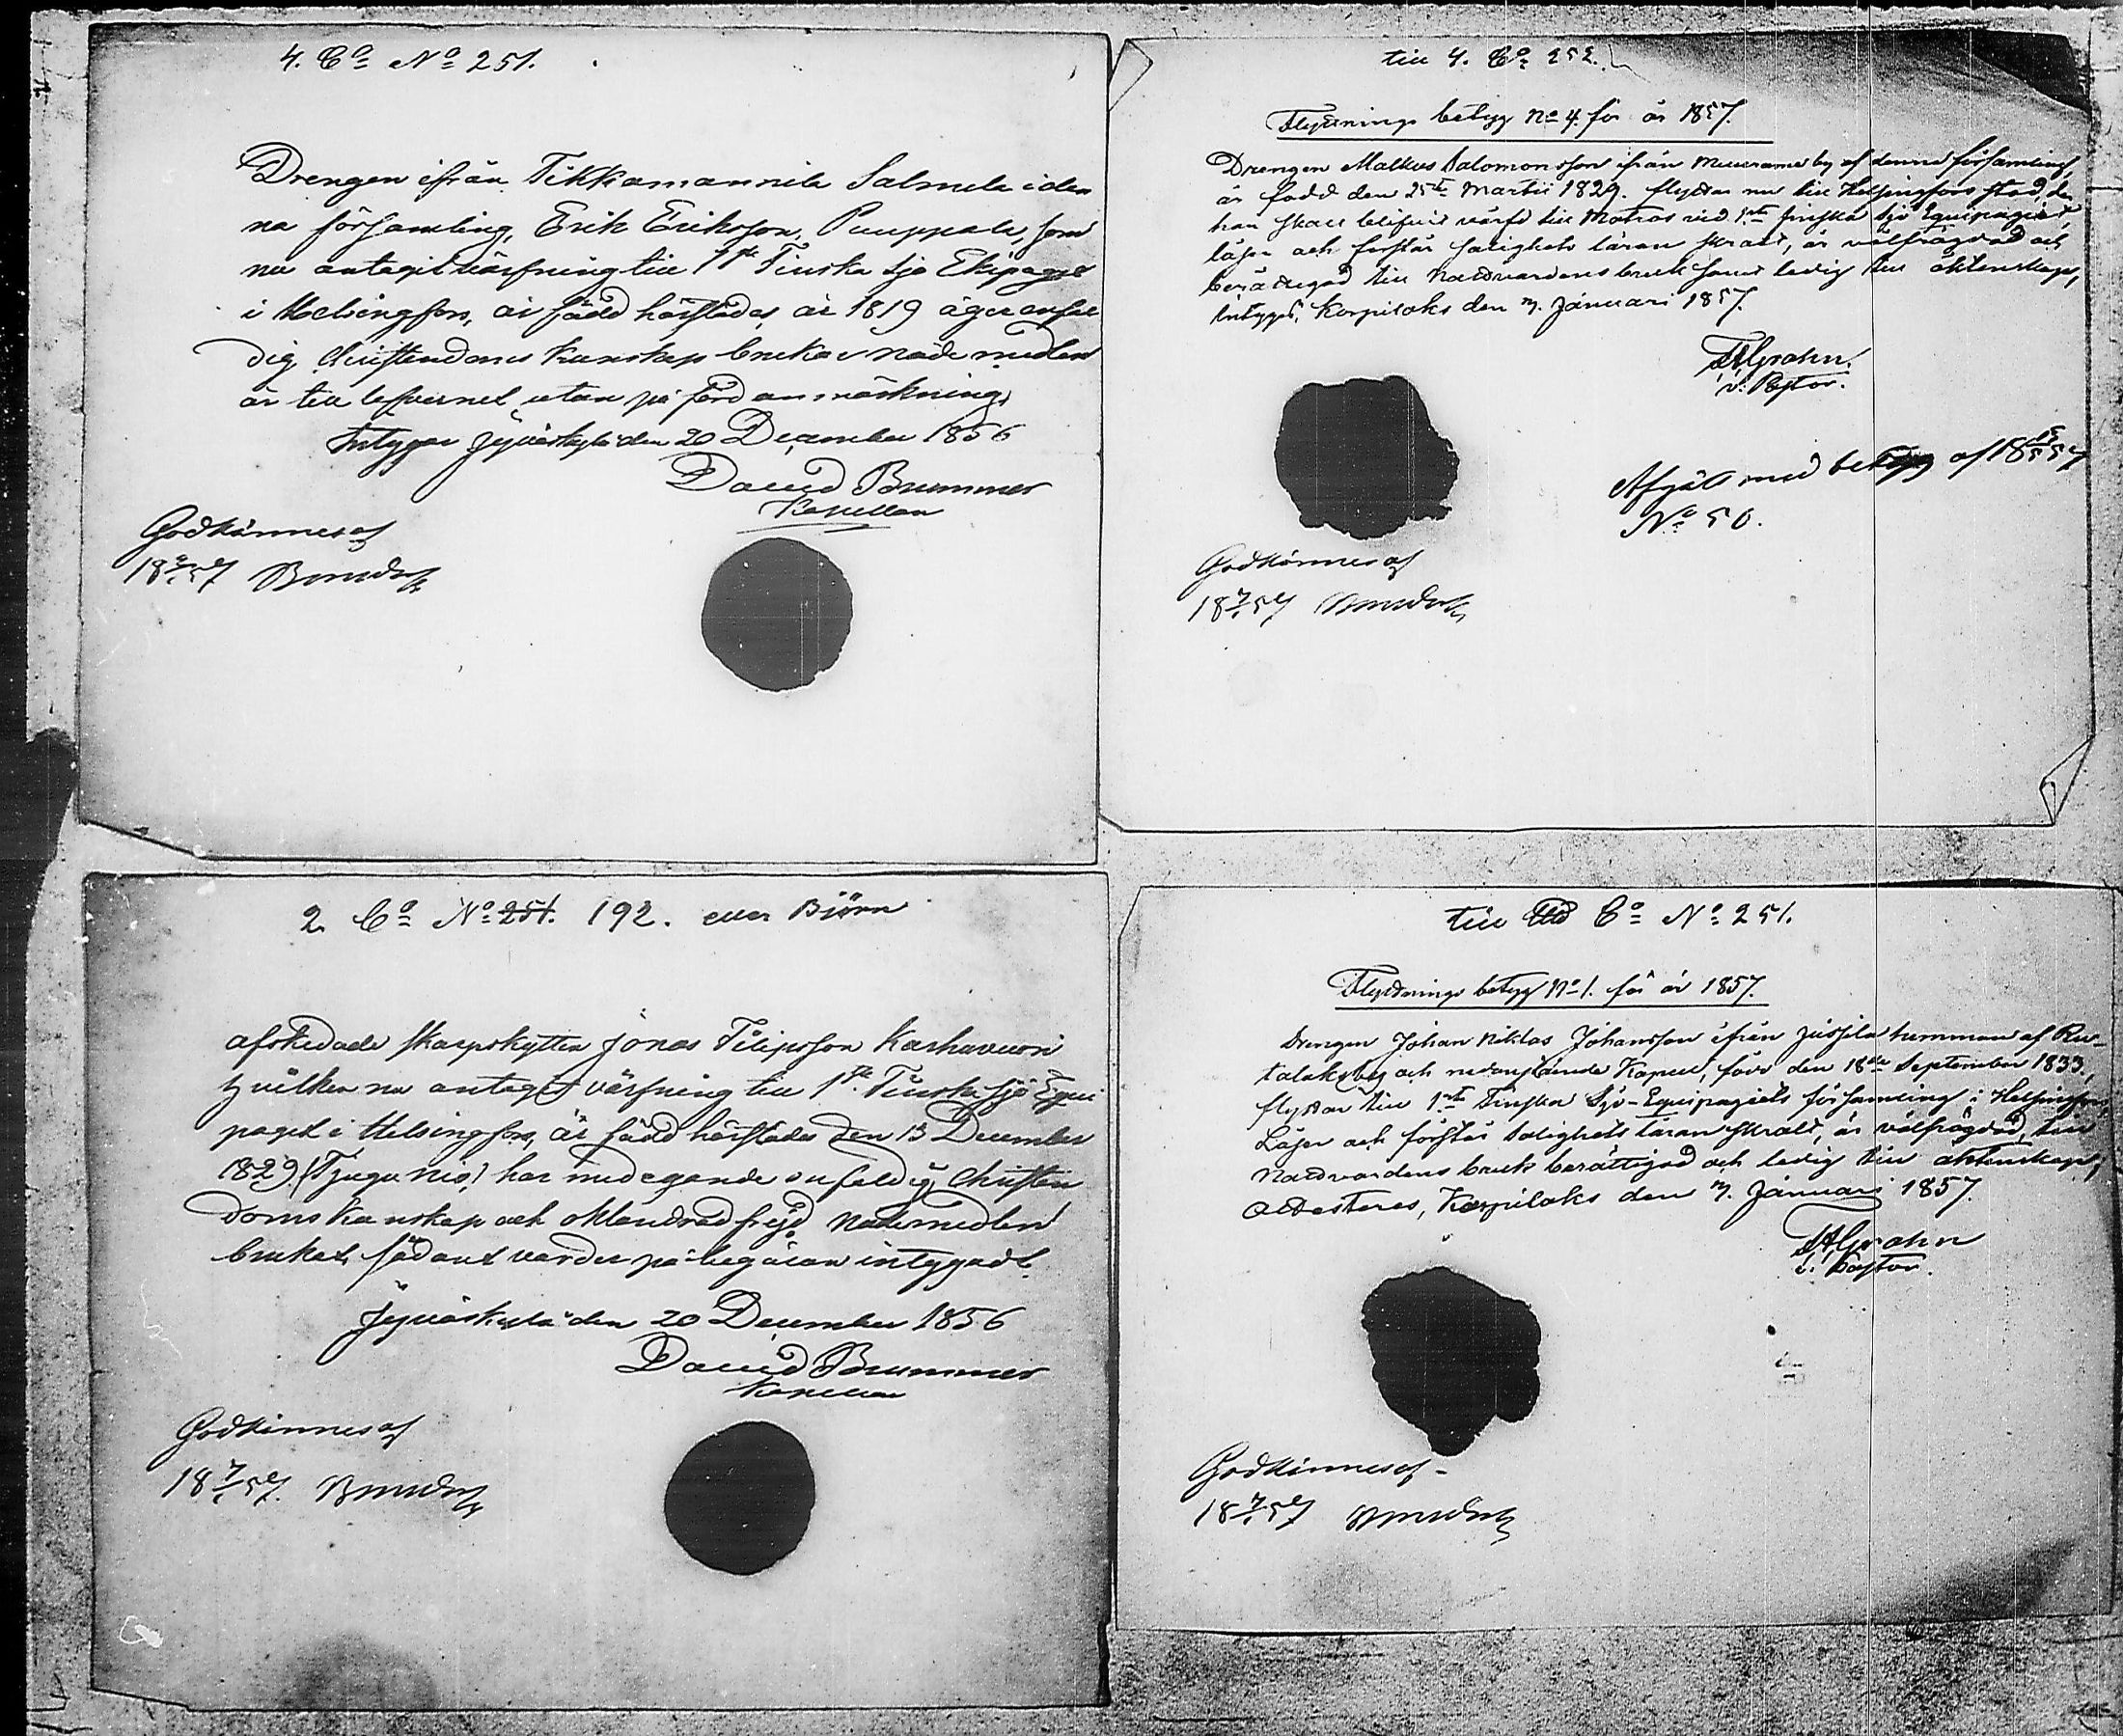 4. Co No 251.
Drengen ifrån Tikkamannila Salmela i den
na församling, Erik Eriksson, Puuppola, som
nu antagit värfning till 1sta Finska Sjö Ekipaget
i Helsingfors, är född härstädes, år 1819 äger enfal
dig Christendoms kunskap brukar nådemedlen
är till lefvernet utan på förd anmärkning,
Intygar Jyväskylä den 20 December 1856
David Brummer
Kapellan
Godkännes af
18 7/1 57
till 4. Co 252.
Flyttnings betyg No 4. för år 1857.
Drengen Malkus Salomonsson ifrån Muurame by af denna församling,
är född den 25te Martii 1829. flyttar nu till Helsingfors stad, der
han skall blifvit värfd till Matros vid 1sta Finska Sjö Equipaget,
läser och förstår salighets läran skralt, är välfrägdad och
berättigad till Nattvardens bruk samt ledig till äktenskap,
Intygas, Korpilaks den 7. Januari 1857.
Grahn.
v. Pastor.
Afgått med betyg af 18 57
No 50.
Godkännes af
18 7/1 57
2. Co No 251. 192. eller Björn
afskedade skarpskytten Jonas Filipsson Karhavuori
hvilken nu antagit värfning till 1sta Finska Sjö Equi
paget i Helsingfors, är född härstädes den 13 December
1829 (Tjugu nio) har med egande enfaldig Christen
doms kunskap och oklandrad frejd nådemedlen
brukat, sådant varder på begäran intygadt.
Jyväskylä den 20 December 1856
David Brummer
Kapellan
Godkännes af
18 7/1 57.
till Co No 251.
Flyttnings betyg No 1. för år 1857.
Drengen Johan Niklas Johansson ifrån Jussila hemman af Ru-
talaks by och nedanstående Kapell, född den 18de September 1833,
flyttar till 1sta Finska Sjö-Equipagets församling i Helsingfors,
Läser och förstår salighets läran skralt, är välfrägdad, till
Nattvardens bruk berättigad och ledig till äktenskap,
attesteras, Korpilaks den 7. Januari 1857.
Grahn
v. Pastor.
Godkännes af
18 7/1 57